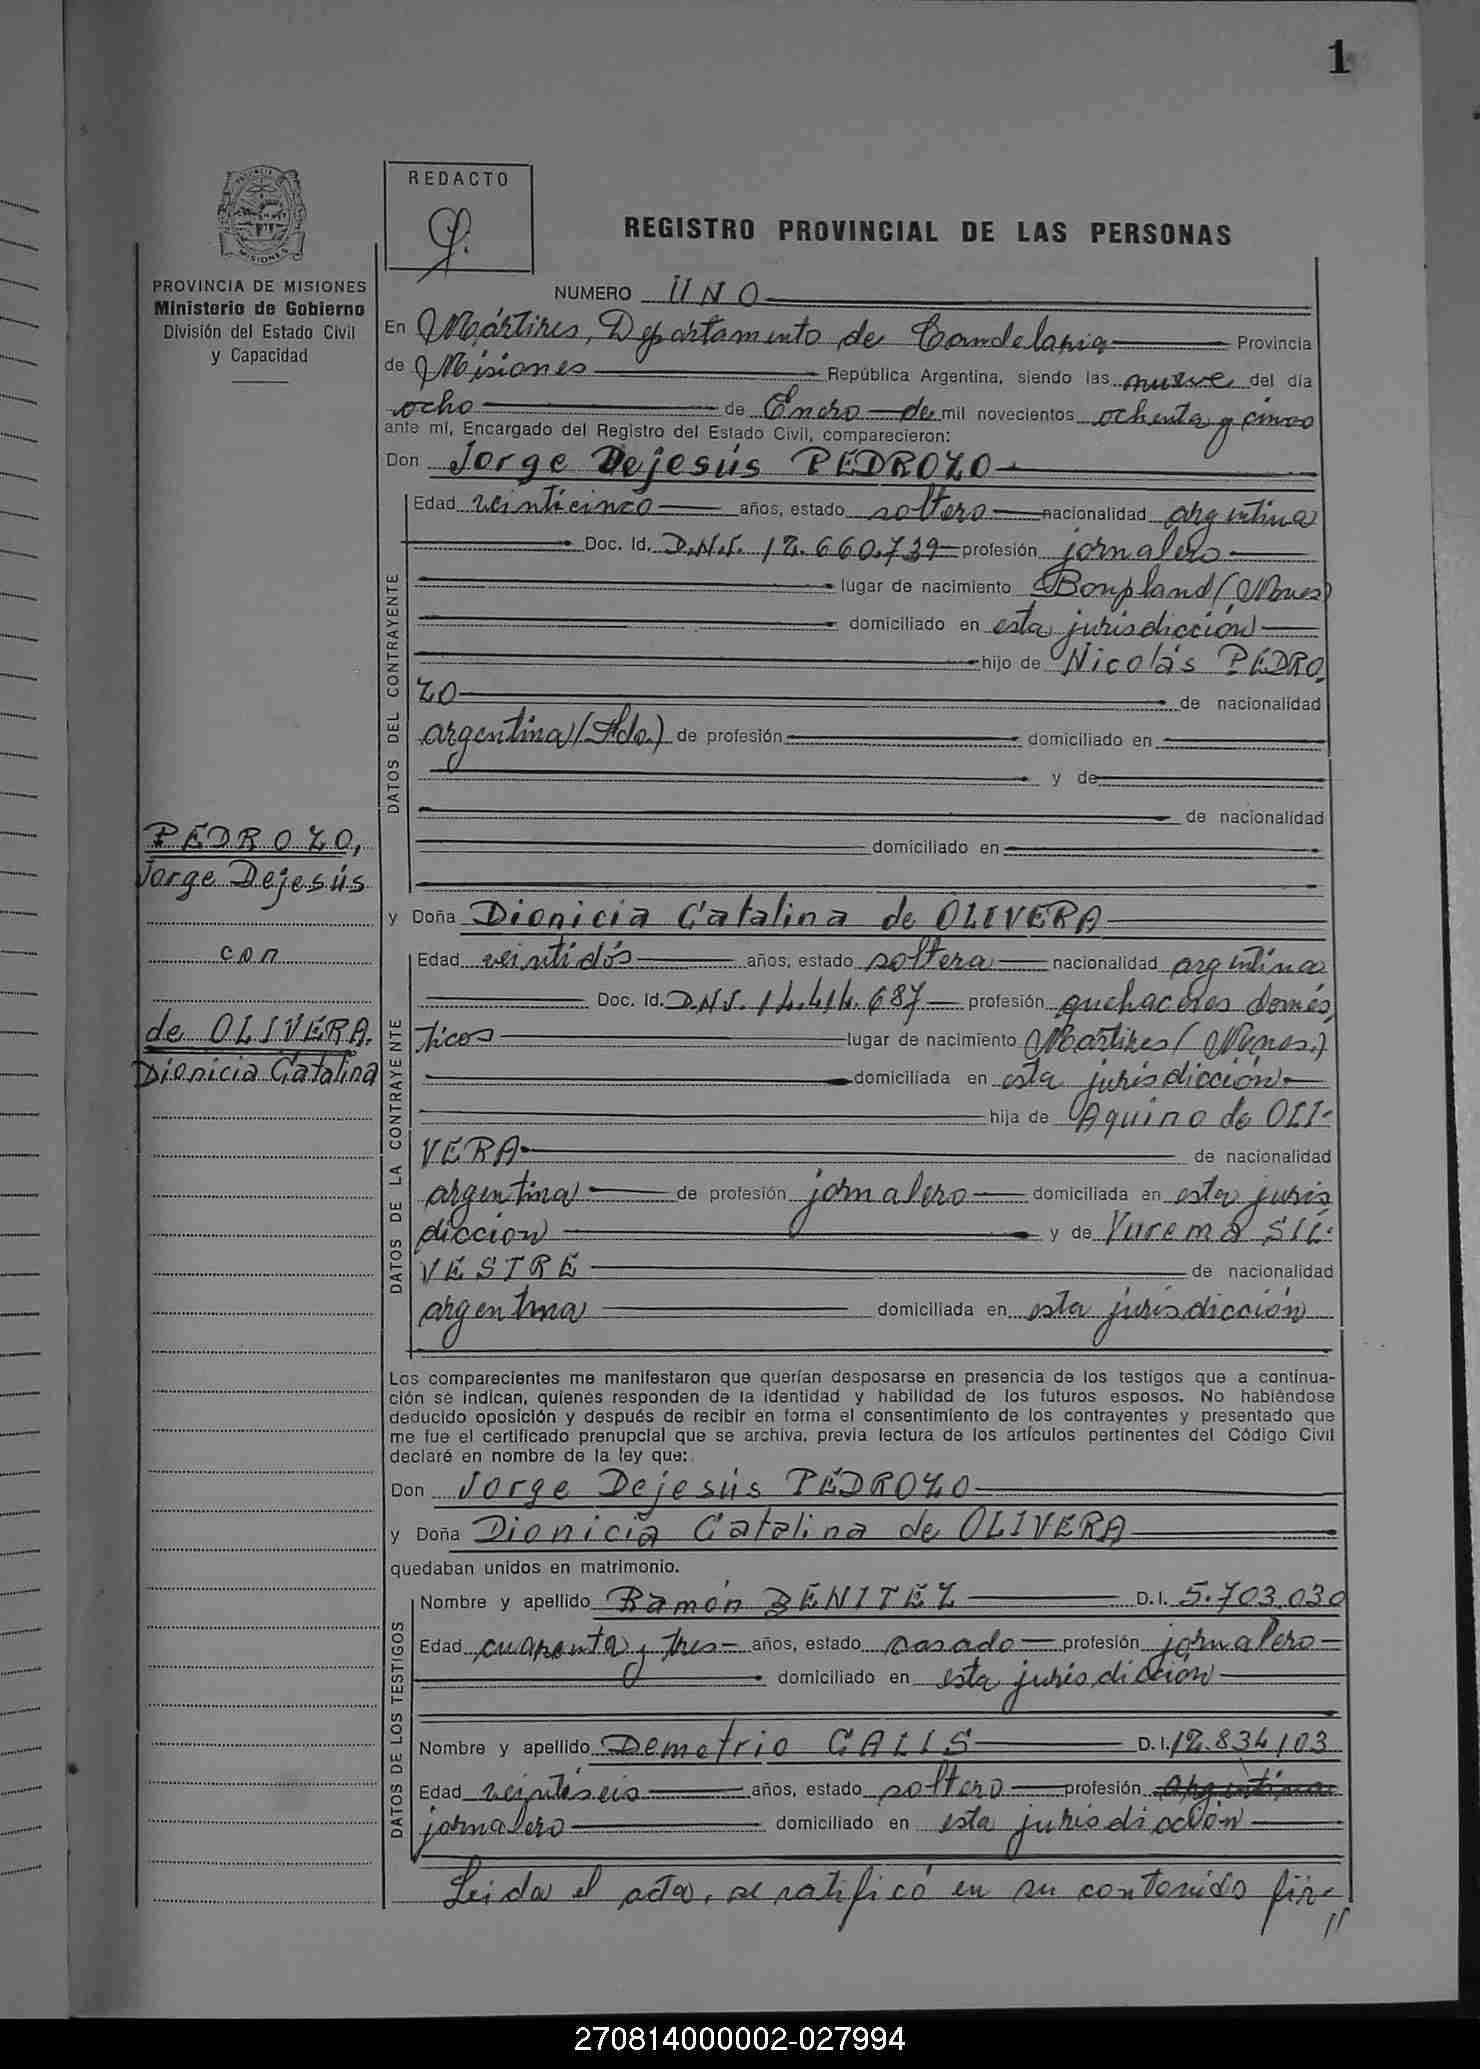 1
REDACTO
PROVINCIA MISIONES
REGISTRO PROVINCIAL DE LAS PERSONAS
PROVINCIA DE MISIONES
Ministerio de Gobierno
División del Estado Civil
y Capacidad
NUMERO UNO
En Mártires, Departamento de Candelaria Provincia
de Misiones República Argentina, siendo las nueve del día
ocho de Enero de mil novecientos ochenta y cinco
ante mí, Encargado del Registro del Estado Civil, comparecieron:
Don Jorge Dejesús PEDROZO
DATOS DEL CONTRAYENTE
Edad veinticinco años, estado soltero nacionalidad argentina
Doc. Id. D.N.I. 12.660.739 profesión jornalero
lugar de nacimiento Bonpland (Mnes)
domiciliado en esta jurisdicción
hijo de Nicolás PEDRO
ZO de nacionalidad
argentina (Fdo.) de profesión domiciliado en
y de
de nacionalidad
domiciliado en
PEDROZO,
Jorge Dejesús
con
de OLIVERA.
Dionicia Catalina
y Doña Dionicia Catalina de OLIVERA
DATOS DE LA CONTRAYENTE
Edad veintidós años, estado soltera nacionalidad argentina
Doc. Id. D.N.I. 14.414.687 profesión quehaceres domés
ticos lugar de nacimiento Mártires (Mnes.)
domiciliada en esta jurisdicción
hija de Aquino de OLI-
VERA de nacionalidad
argentina de profesión jornalero domiciliada en esta juris
diccion y de Yurema SIL-
VESTRE de nacionalidad
argentina domiciliada en esta jurisdicción
Los comparecientes me manifestaron que querían desposarse en presencia de los testigos que a continua-
ción se indican, quienes responden de la identidad y habilidad de los futuros esposos. No habiéndose
deducido oposición y después de recibir en forma el consentimiento de los contrayentes y presentado que
me fue el certificado prenupcial que se archiva, previa lectura de los artículos pertinentes del Código Civil
declaré en nombre de la ley que:
Don Jorge Dejesús PEDROZO
y Doña Dionicia Catalina de OLIVERA
quedaban unidos en matrimonio.
DATOS DE LOS TESTIGOS
Nombre y apellido Ramón BENITEZ D.I. 5.703.030
Edad cuarenta y tres años, estado casado profesión jornalero
domiciliado en esta jurisdicción
Nombre y apellido Demetrio GALIS D.I. 12.834.103
Edad veintiseis años, estado soltero profesión argentina
jornalero domiciliado en esta jurisdicción
Leida el acta, se ratificó en su contenido fir-
//
270814000002-027994